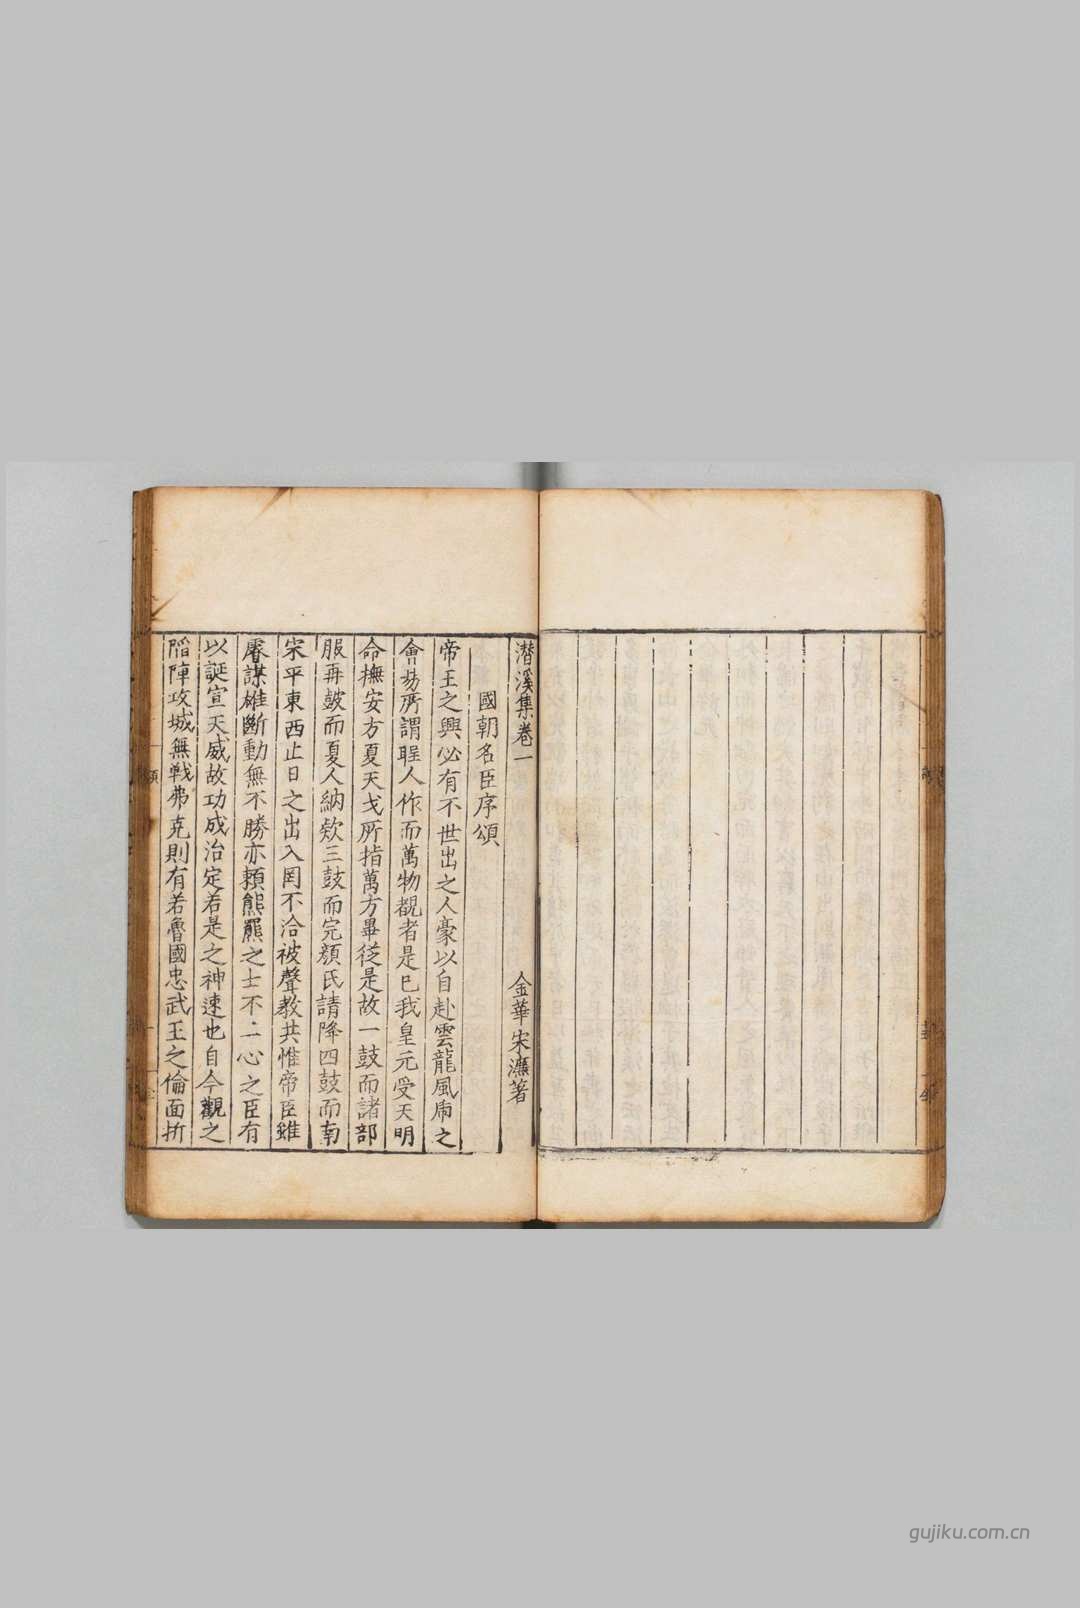 潛溪集卷一
金華宋濂著
國朝名臣序頌
帝王之興必有不世出之人豪以自赴雲龍風虎之
會昜所謂聖人作而萬物覩者是已我皇元受天明
命撫安方夏天戈所指萬方畢從是故一鼓而諸部
服再鼓而夏人納欵三鼓而完顏氏請降四鼓而南
宋平東西止日之出入罔不洽被聲教共惟帝臣雖
睿謀雄斷動無不勝亦頼熊羆之士不二心之臣有
以誕宣天威故功成治定若是之神速也自今觀之
陷陣攻城無戰弗克則有若魯國忠武王之倫面折
gujiku.com.cn